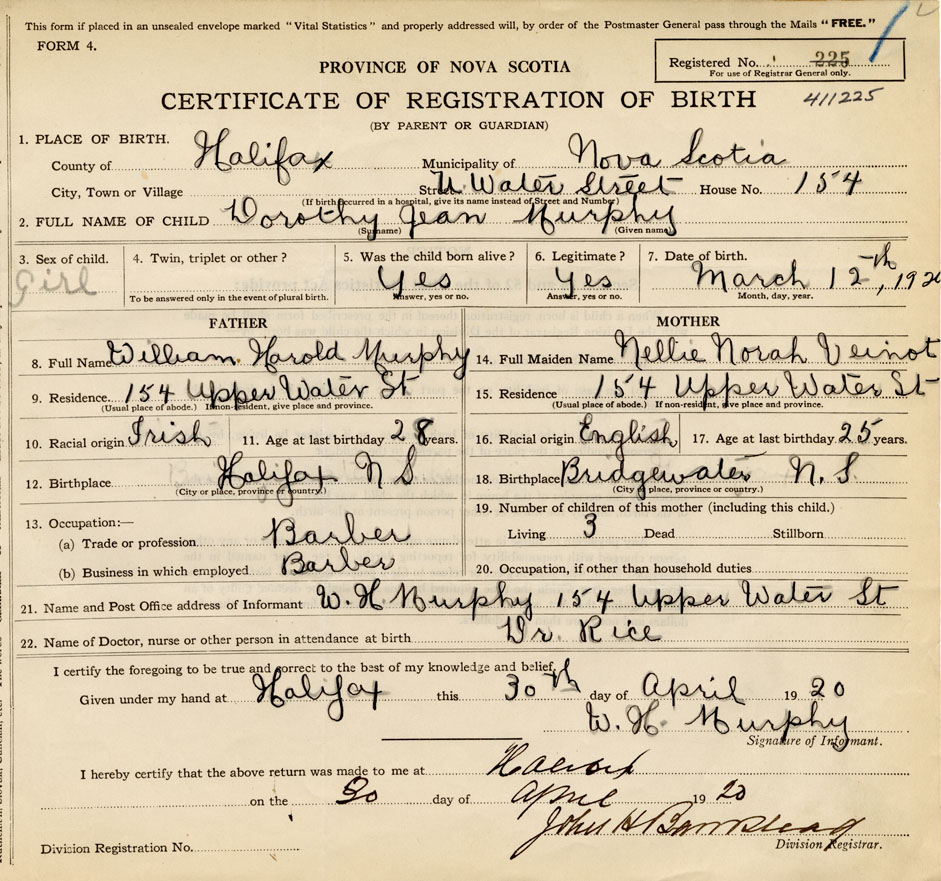 This form if placed in an unsealed envelope marked "Vital Statistics" and properly addressed will, by order of the Postmaster General pass through the Mails "FREE."
FORM 4.
Registered No. 225
For use of Registrar General only.
PROVINCE OF NOVA SCOTIA
CERTIFICATE OF REGISTRATION OF BIRTH
411225
(BY PARENT OR GUARDIAN)
1. PLACE OF BIRTH.
County of Halifax Municipality of Nova Scotia
City, Town or Village Street U Water Street House No. 154
(If birth occurred in a hospital, give its name instead of Street and Number)
2. FULL NAME OF CHILD Dorothy Jean Murphy
(Surname) (Given name)
3. Sex of child. 4. Twin, triplet or other? 5. Was the child born alive? 6. Legitimate? 7. Date of birth.
Girl Yes Yes March 12th, 1920
To be answered only in the event of plural birth. Answer, yes or no. Answer, yes or no. Month, day, year.
FATHER MOTHER
8. Full Name William Harold Murphy 14. Full Maiden Name Nellie Norah Veinot
9. Residence. 154 Upper Water St 15. Residence 154 Upper Water St
(Usual place of abode.) If non-resident, give place and province. (Usual place of abode.) If non-resident, give place and province.
10. Racial origin Irish 11. Age at last birthday 28 years. 16. Racial origin English 17. Age at last birthday 25 years.
12. Birthplace Halifax N S 18. Birthplace Bridgewater N. S.
(City or place, province or country.) (City or place, province or country.)
13. Occupation:— 19. Number of children of this mother (including this child.)
(a) Trade or profession Barber Living 3 Dead Stillborn
(b) Business in which employed Barber 20. Occupation, if other than household duties
21. Name and Post Office address of Informant W. H. Murphy 154 Upper Water St
22. Name of Doctor, nurse or other person in attendance at birth Dr. Rice
I certify the foregoing to be true and correct to the best of my knowledge and belief.
Given under my hand at Halifax this 30th day of April 1920
W. H. Murphy
Signature of Informant.
I hereby certify that the above return was made to me at
on the 30 day of April 1920
John H
Division Registration No. Division Registrar.